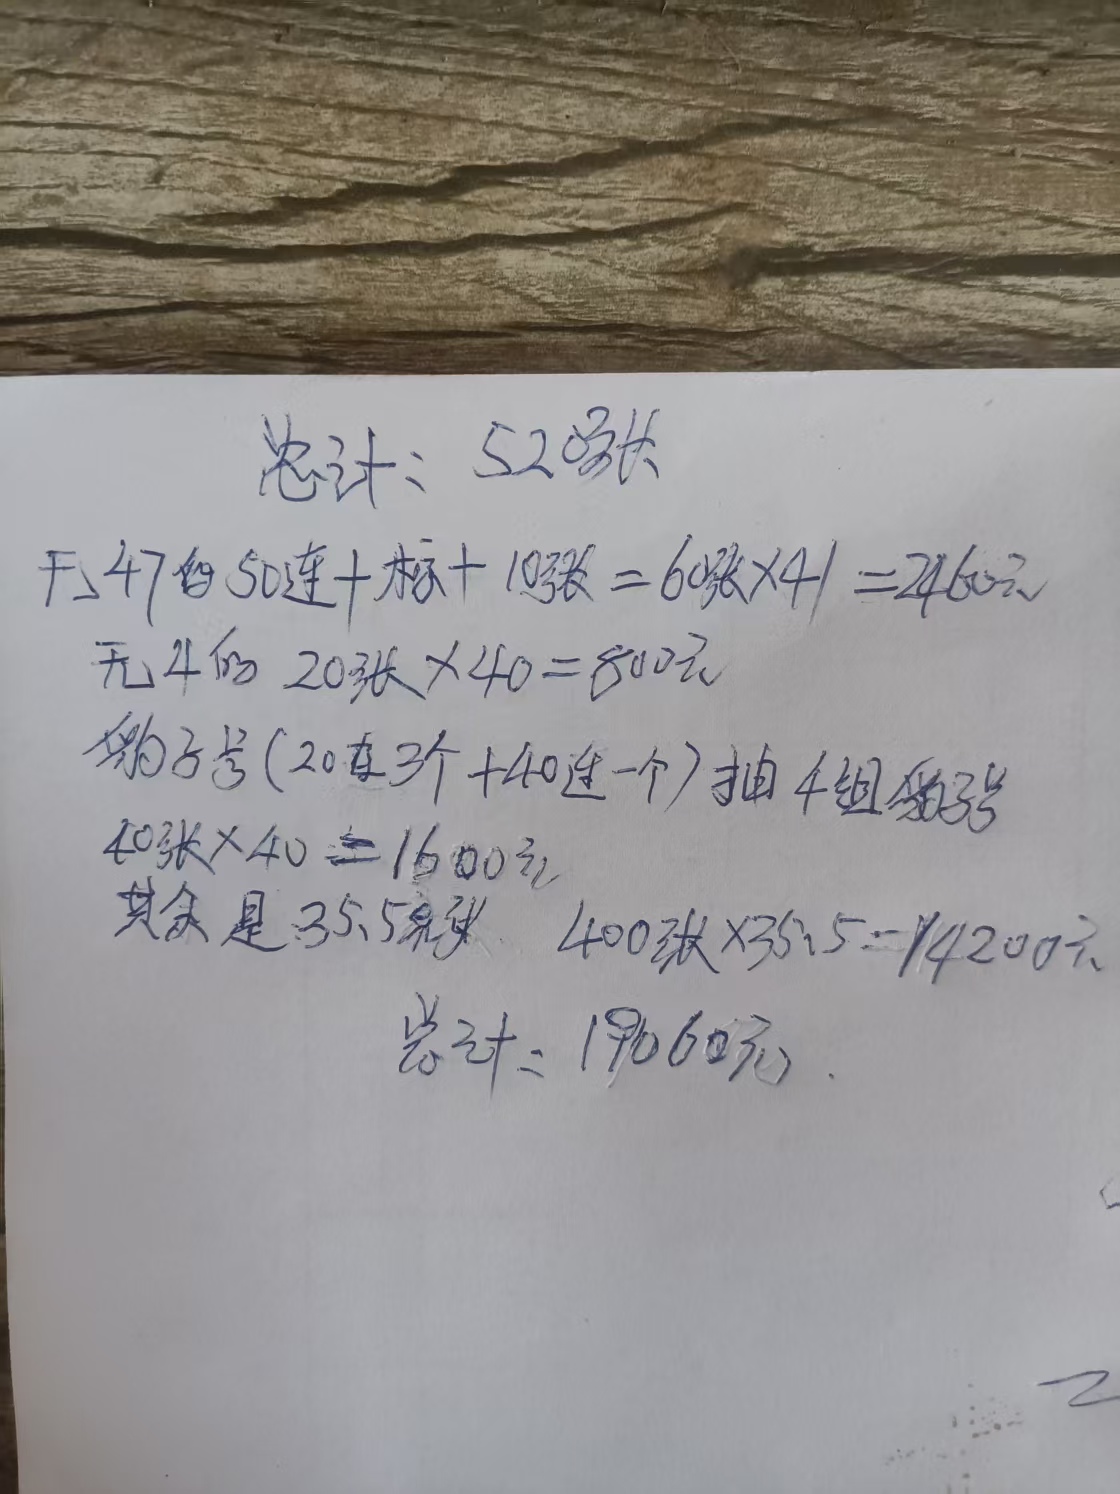 总计: 520张
无47的50连+标+10张=60张×41=2460元
无4的 20张×40=800元
豹子号(20连3个+40连一个)抽4组豹子号
40张×40=1600元
其余是35.5元张 400张×35.5=14200元
总计=19060元.